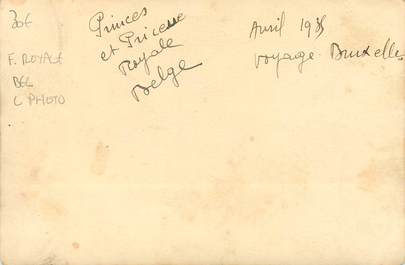 30€
F. ROYALE
BEL
C PHOTO
Princes
et Pricesse
Royale
Belge
Avril 1935
voyage Bruxelles